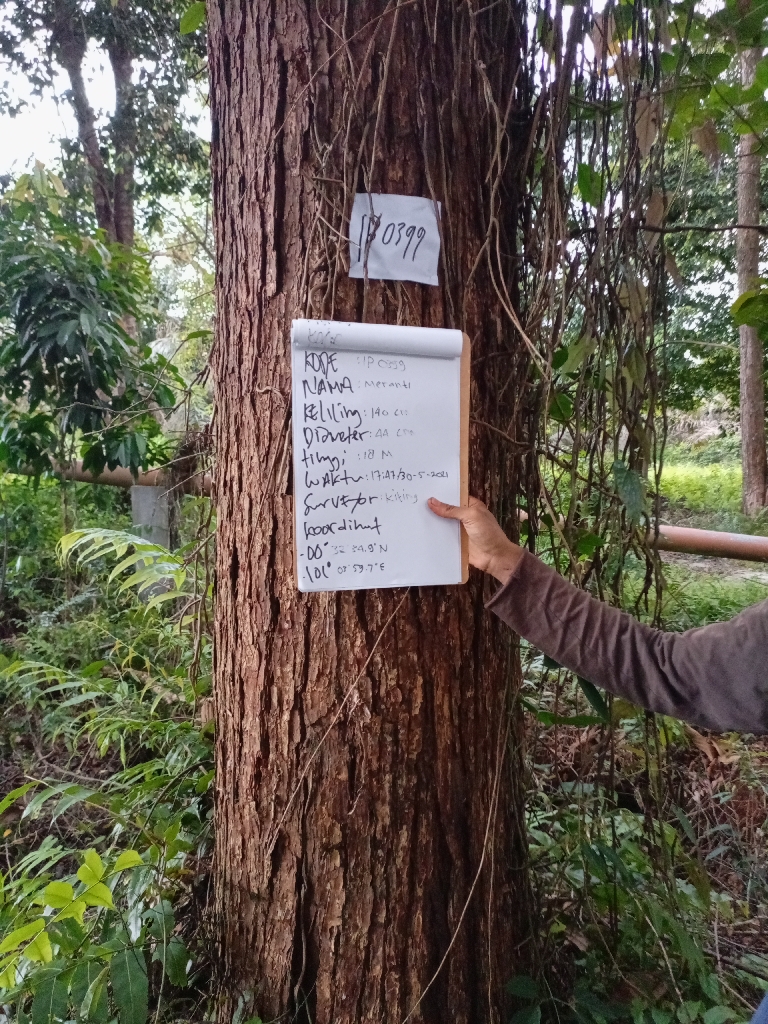 IP 0399
KODE : IP 0399
NAMA : Meranti
Keliling : 140 cm
Diameter : 44 cm
tinggi : 18 M
WAKtu : 17:47/30-5-2021
Surveyor : kiking
koordinat
-00° 32 34.9" N
101° 03' 59.7" E